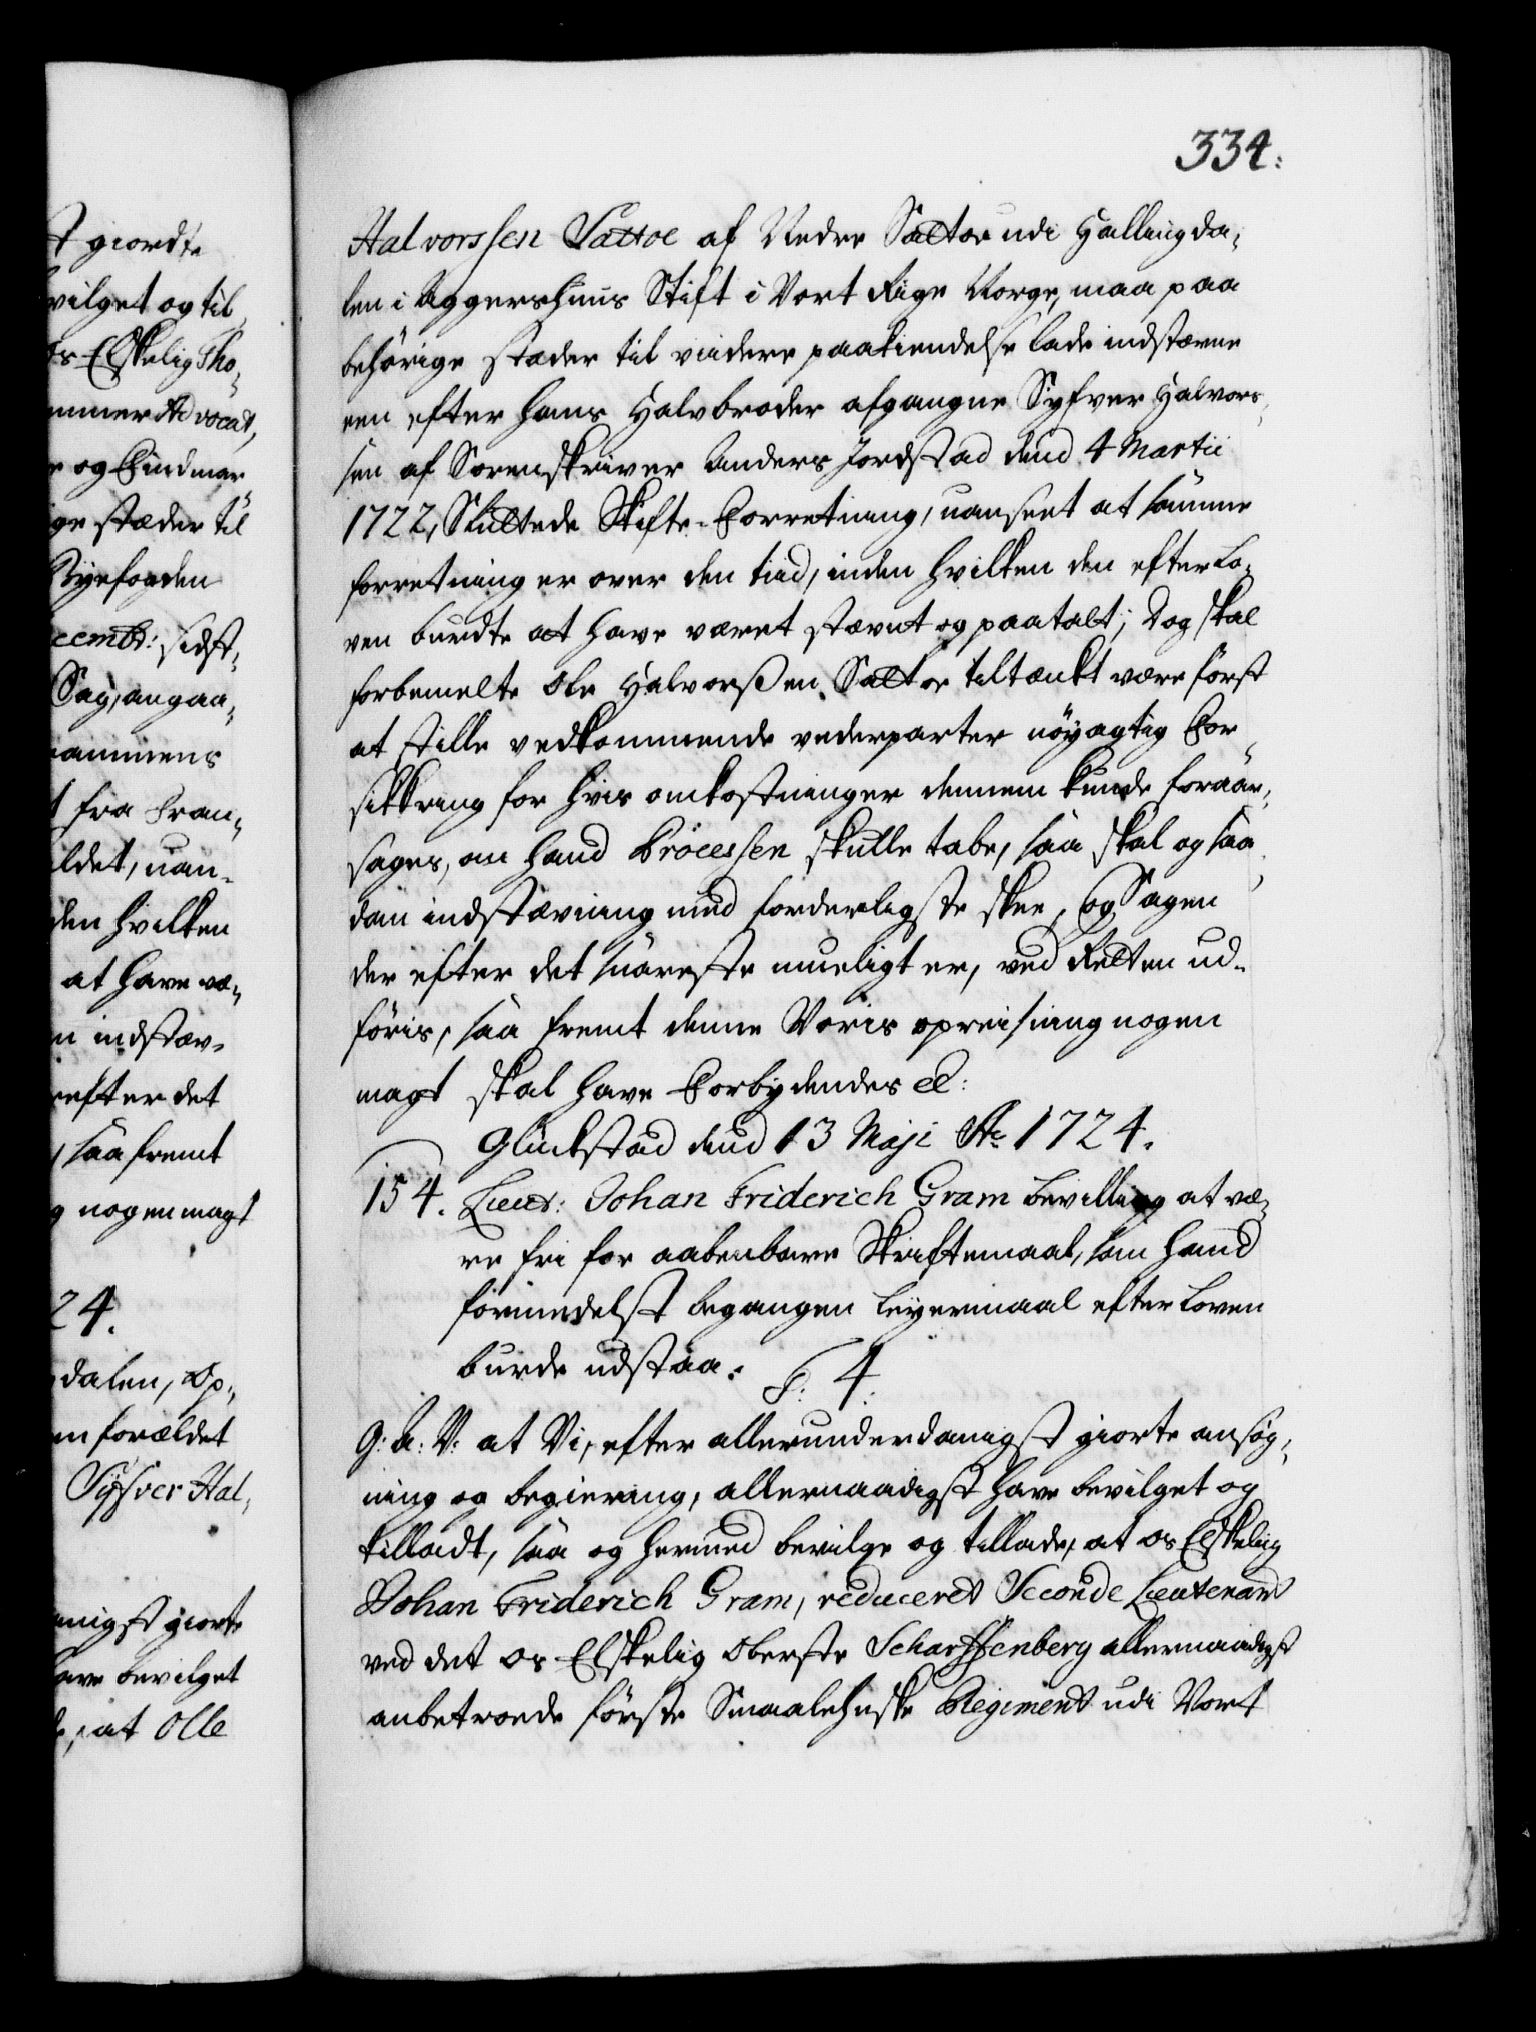 st giordte
vilget og til
os Elskelig Tho-
ammer Advocat,
r og Findmar
ige stæder til
Byefogden
cembr: sidst-
Sag, angaa-
ammens
t fra Fran-
ldet, uan-
den hvilken
at have væ-
n indstæv-
refter det
, saa fremt
g nogen magt
24.
dalen, Op-
en forældet
Syfver Hal-
anigst giorte
have bevilget
de, at Olle
334.
Halvorssen Sattoe af Nedre Sattoe udi Hallingda-
len i Aggershuus Stift i Vort Rige Norge, maa paa
behørige stæder til viidere paakiendelse lade indstævne
een efter hans Halvbroder afgangne Syfver Halvors-
sen af Sorenskriver Anders Jordstad dend 4 Martii
1722, Sluttede Skifte-Forretning, uanseet at samme
forretning er over den tiid, inden hvilken den efter Lo-
ven burdte at have været stævnt og paatalt; Dog skal
forbemelte Ole Halvorssen Sattoe tiltænkt være først
at stille vedkommende vederparter nøyagtig For-
sikkring for hvis omkostninger dennem kunde foraar-
sages, om hand Processen skulle tabe, saa skal og saa-
dan indstævning med forderligste skee, og Sagen
der efter det snareste mueligt er, ved Retten ud-
føris, saa fremt denne Voris opreisning nogen
magt skal have Forbydendes etc:
Glückstad dend 13 Maji Ao 1724.
154. Lieut: Johan Friderich Gram bevilling at væ-
re fri for aabenbare Skriftemaal, som hand
formedelst begangen Leyermaal efter Loven
burde udstaa.
F. 4.
G: A: V: at Vi, efter allerunderdanigst giorte ansøg-
ning og begiering, allernaadigst have bevilget og
tilladt, saa og hermed bevilge og tillade, at os Elskelig
Johan Friderich Gram, reduceret Seconde Lieutenant
ved det os Elskelig Oberste Scharffenberg allernaadigst
anbetroede første Smaalehnske Regiment udi Vort